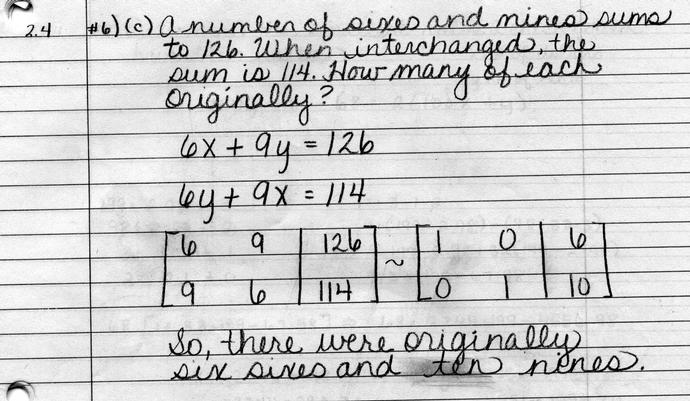 2.4 #6) (c) A number of sixes and nines sums
to 126. When interchanged, the
sum is 114. How many of each
originally?
6x + 9y = 126
6y + 9x = 114
[6 9 | 126] ~ [1 0 | 6]
[9 6 | 114] [0 1 | 10]
So, there were originally
six sixes and ten nines.